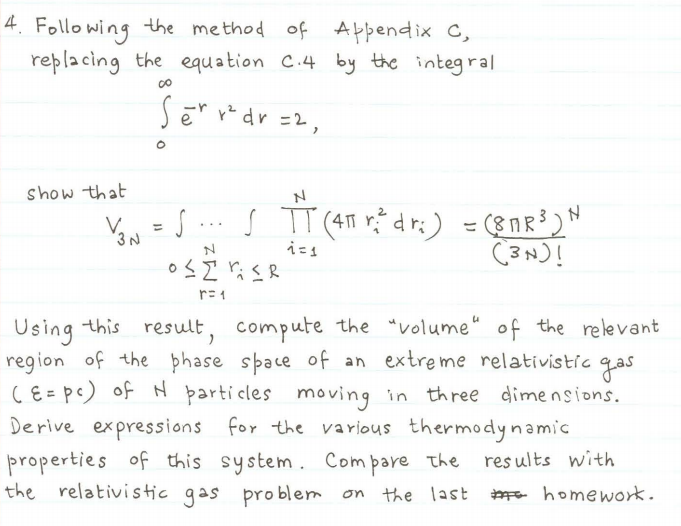 4. Following the method of Appendix C,
replacing the equation C.4 by the integral
∫₀^∞ e^{-r} r² dr = 2,
show that
V_{3N} = ∫ ... ∫_{0 ≤ Σ_{r=1}^{N} r_i ≤ R} ∏_{i=1}^{N} (4π r_i² dr_i) = (8πR³)^N / (3N)!
Using this result, compute the "volume" of the relevant
region of the phase space of an extreme relativistic gas
(ε = pc) of N particles moving in three dimensions.
Derive expressions for the various thermodynamic
properties of this system. Compare The results with
the relativistic gas problem on the last homework.